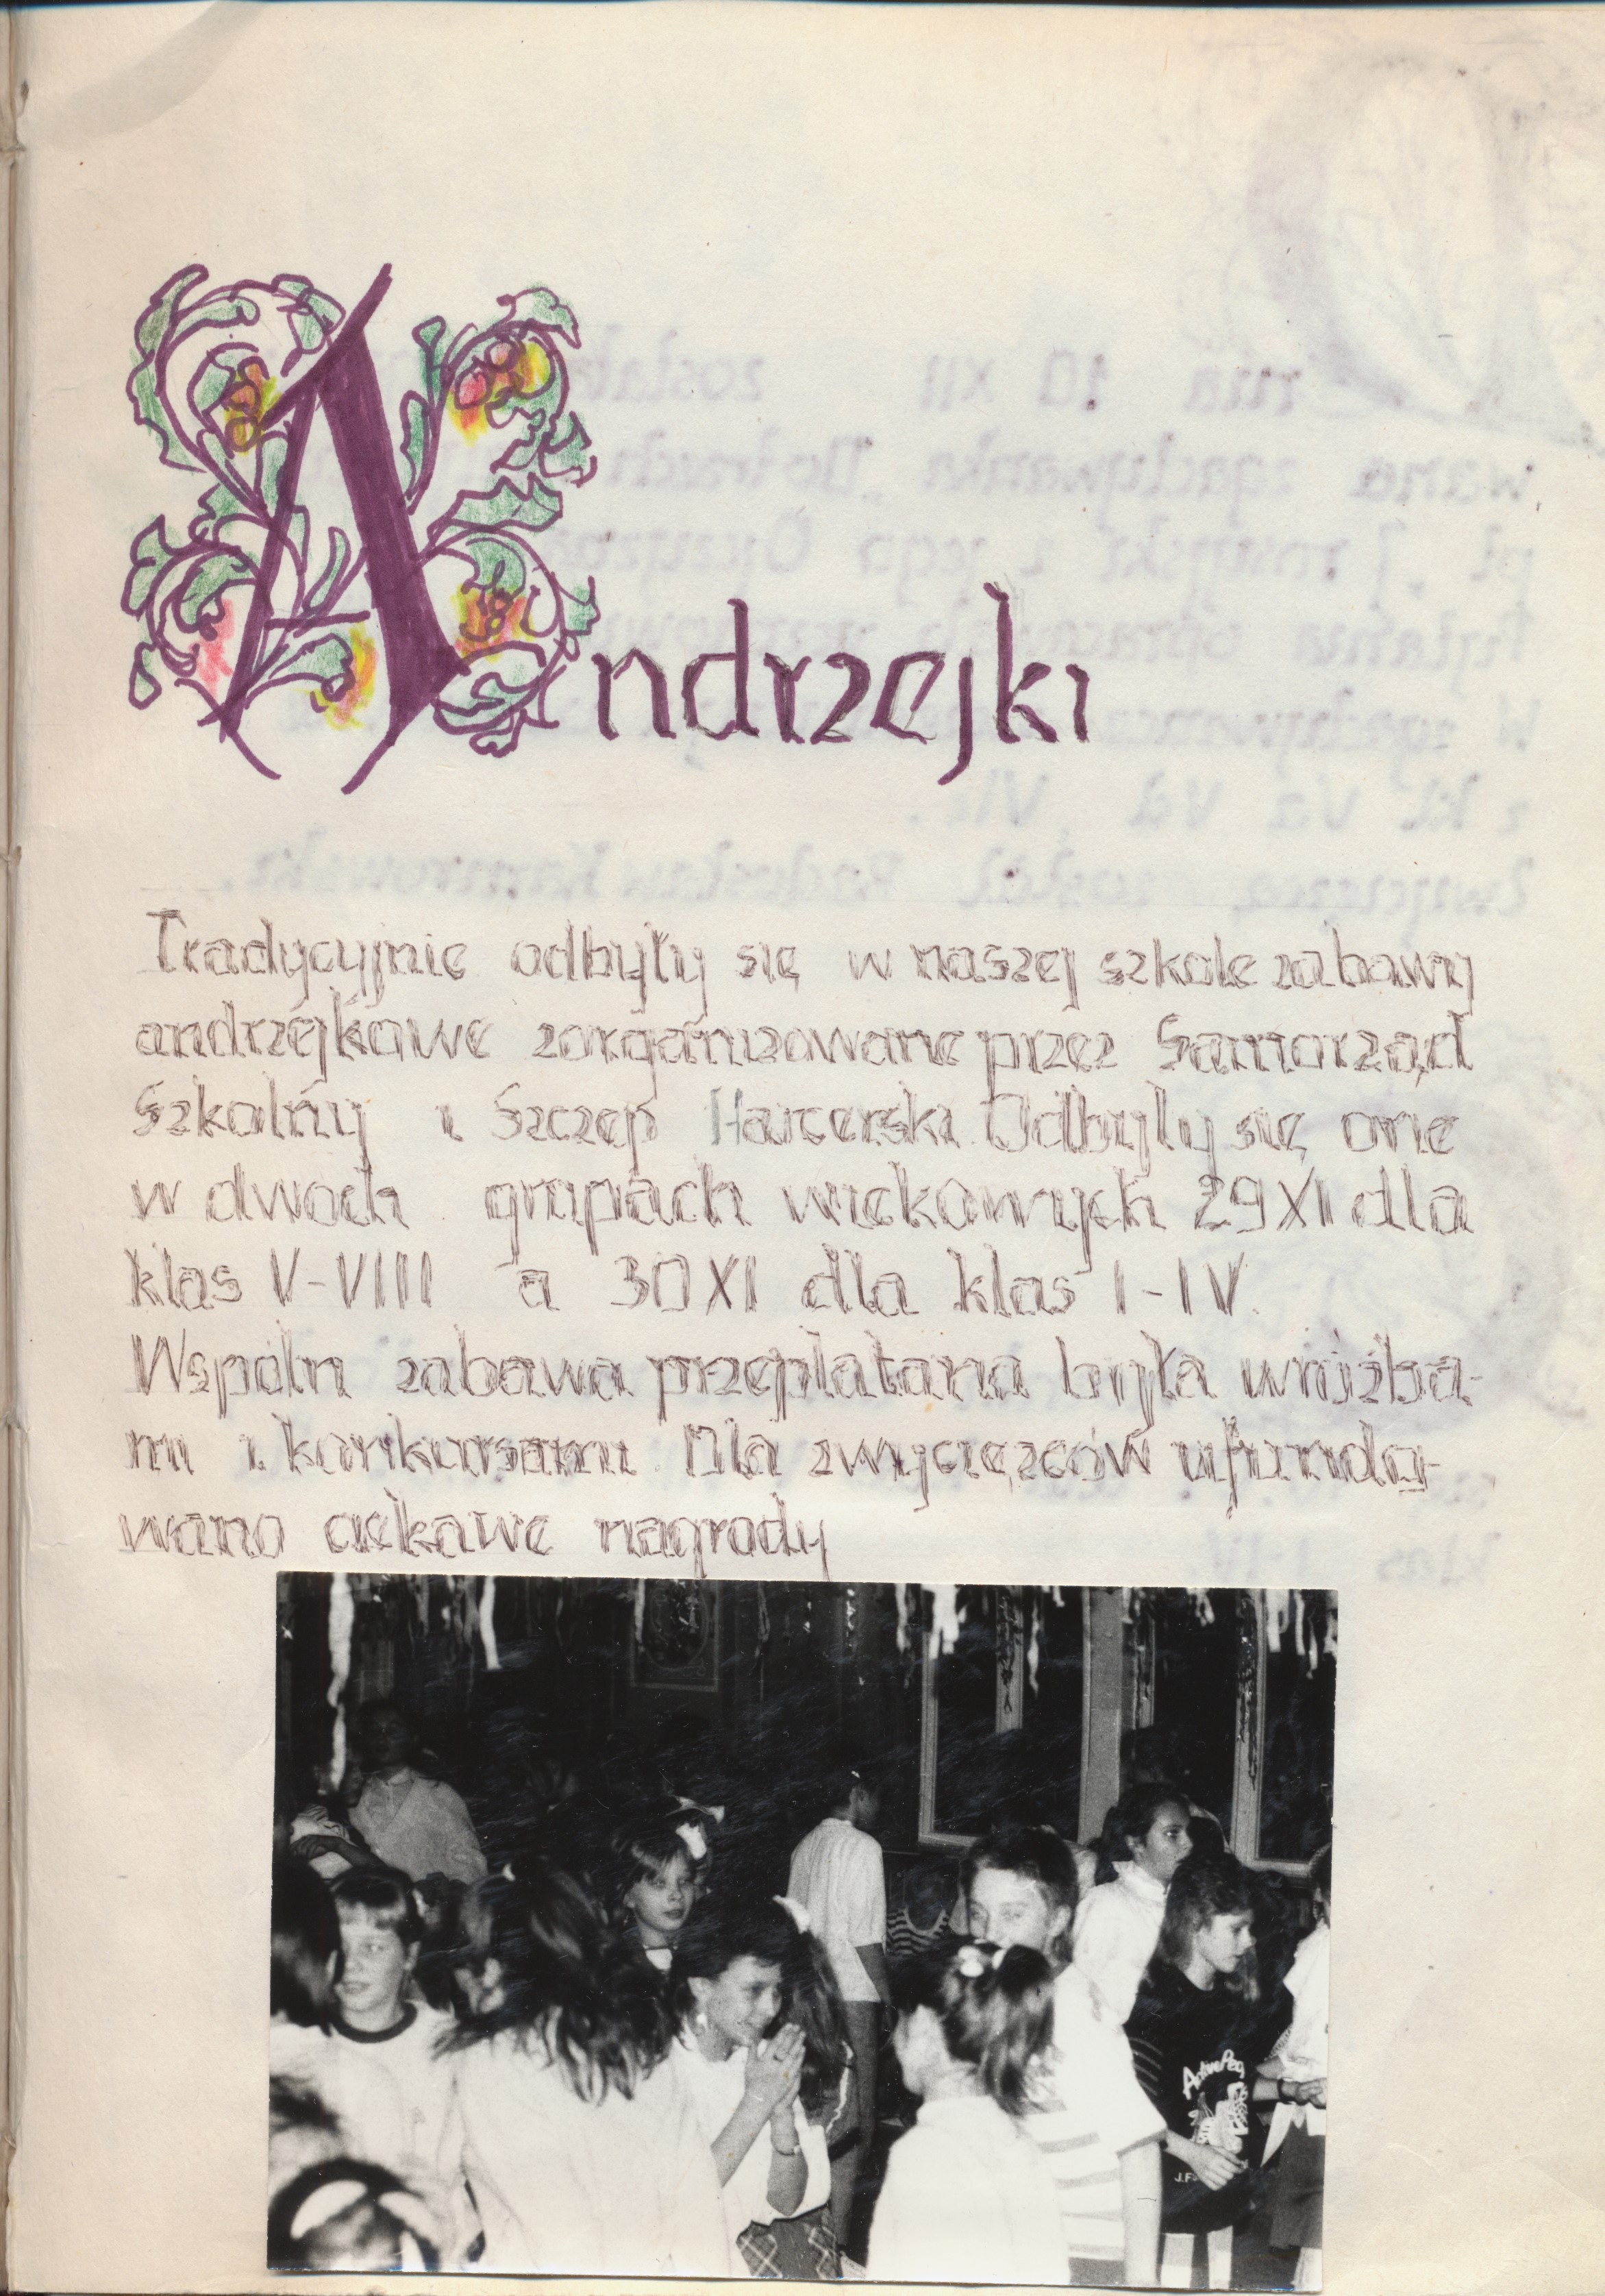 Andrzejki
Tradycyjnie odbyły się w naszej szkole zabawy
andrzejkowe zorganizowane przez Samorząd
Szkolny i Szczep Harcerski. Odbyły się one
w dwoch grupach wiekowych 29 XI dla
klas V-VIII a 30 XI dla klas I-IV.
Wspóln zabawa przeplatana była wróżba-
mi i konkursami. Dla zwycięzców ufundo-
wano ciekawe nagrody